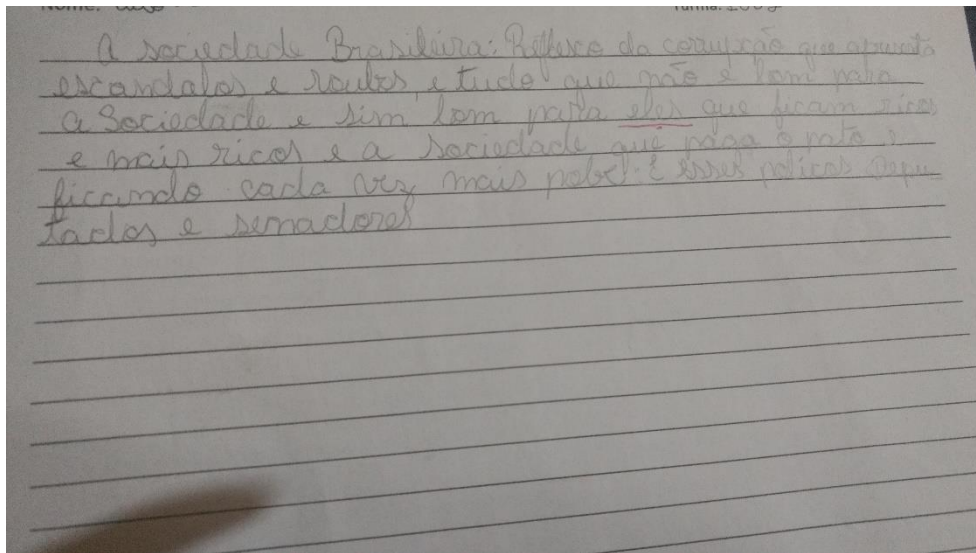 Nome:
Turma:
A sociedade Brasileira: Reflexo da corrupção que
escandalos e roubos, e tudo que não é bom para
a Sociedade e sim bom para eles que ficam ricos
e mais ricos e a sociedade que paga o pato e
ficando cada vez mais pobre. E esses policos Depu
tados e senadores